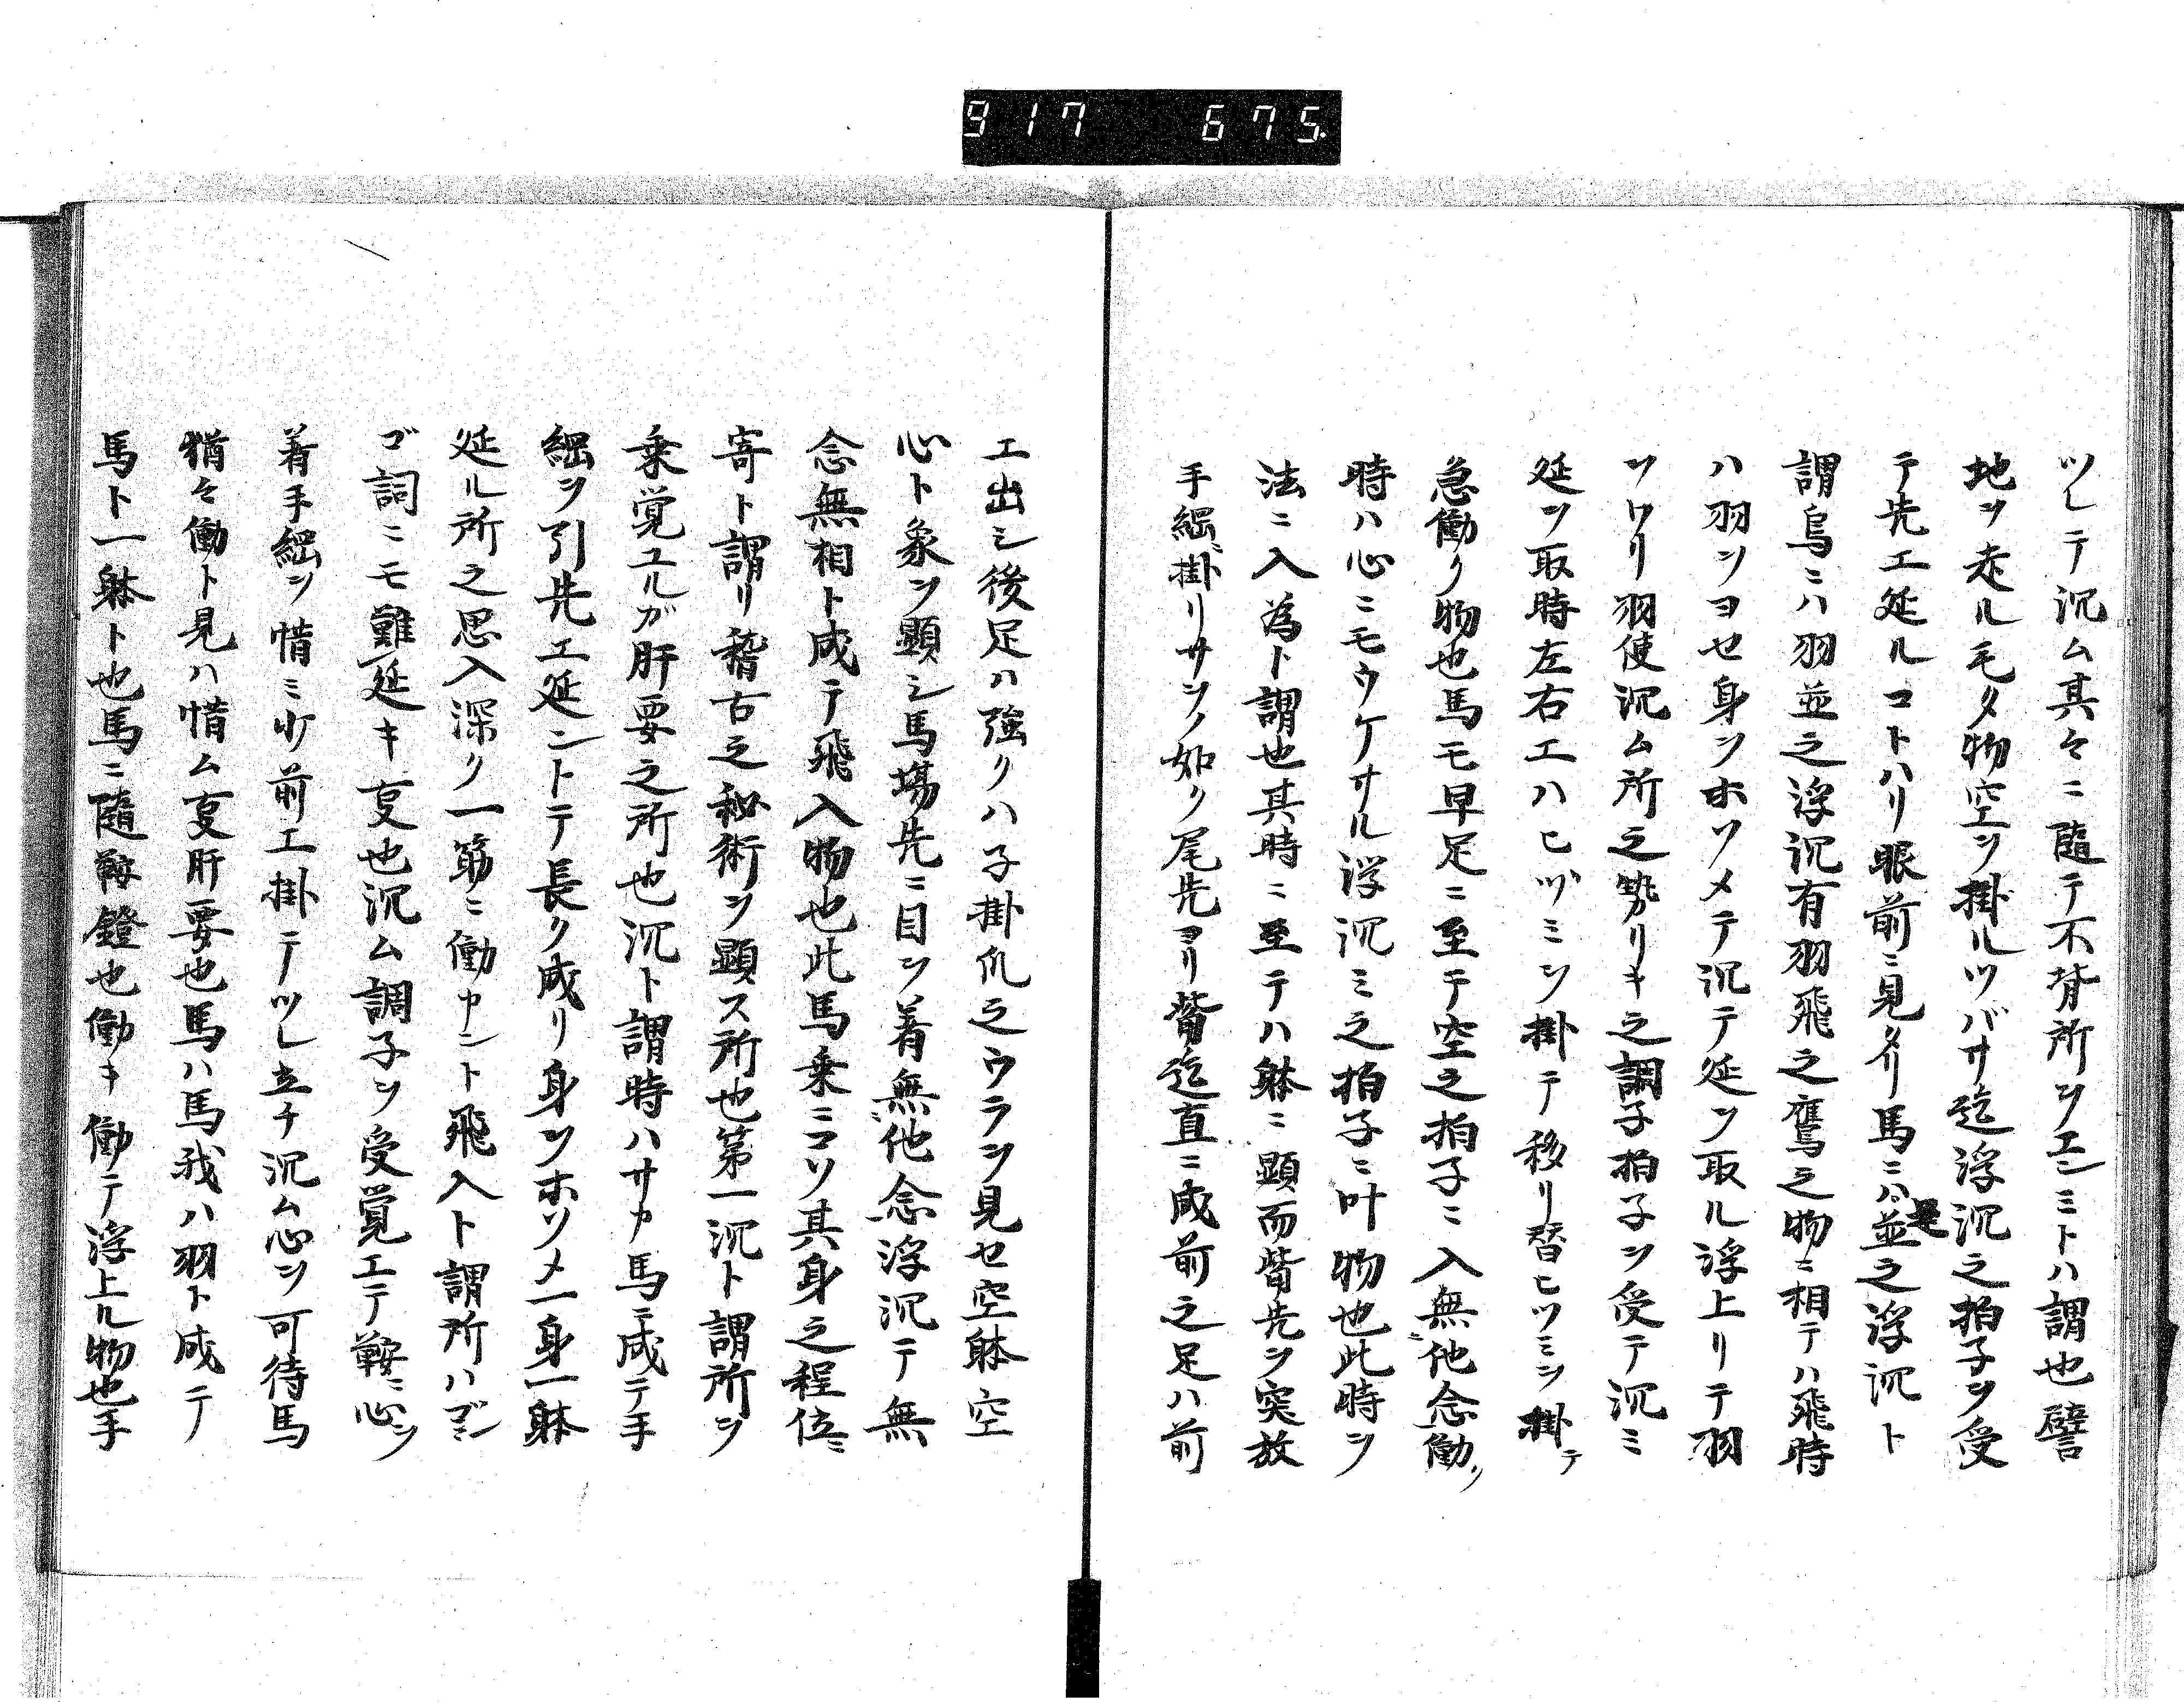 917 675
ツレテ沉ム其々ニ随テ不背所ヲエンミトハ謂也譬
地ヲ走ル毛タ物空ヲ掛ルツバサ迄浮沉之拍子ヲ受
テ先エ延ルコトハリ眼前ニ見タリ馬ニハ足並之浮沉ト
謂鳥ニハ羽並之浮沉有羽飛之鷹之物ニ相テハ飛時
ハ羽ヲヨセ身ヲホソメテ沉テ延ヲ取ル浮上リテ羽
ヲワリ羽使沉ム所之勢リキ之調子拍子ヲ受テ沉ミ
延ヲ取時左右エハヒヅミヲ掛テ移リ替ヒツミヲ掛テ
急働ク物也馬モ早足ニ至テ空之拍子ニ入無他念働ク
時ハ心ニモウケサル浮沉ミ之拍子ニ叶物也此時ヲ
法ニ入為ト謂也其時ニ至テハ躰ニ顕而觜先ヲ突放
手綱ニ掛リサヲノ如ク尾先ヨリ觜迄直ニ成前之足ハ前
エ出シ後足ハ強クハ子掛爪之ウラヲ見セ空躰空
心ト象ヲ顕シ馬場先ニ目ヲ着無他念浮沉テ無
念無相ト成テ飛入物也此馬乗ニコソ其身之程位ニ
寄ト謂リ稽古之秘術ヲ顕ス所也第一沉ト謂所ヲ
乗覚ユルガ肝要之所也沉ト謂時ハサカ馬ニ成テ手
綱ヲ引先エ延ントテ長ク成リ身ヲホソメ一身一躰
延ル所之思入深ク一筋ニ働カント飛入ト謂所ハデン
ゴ詞ニモ難延キ叓也沉ム調子ヲ受覚エテ鞍ニ心ヲ
着手綱ヲ惜ミ少前エ掛テツレ立チ沉ム心ヲ可待馬
猶々働ト見ハ惜ム叓肝要也馬ハ馬我ハ羽ト成テ
馬ト一躰ト也馬ニ随鞍鐙也働キ働テ浮上ル物也手